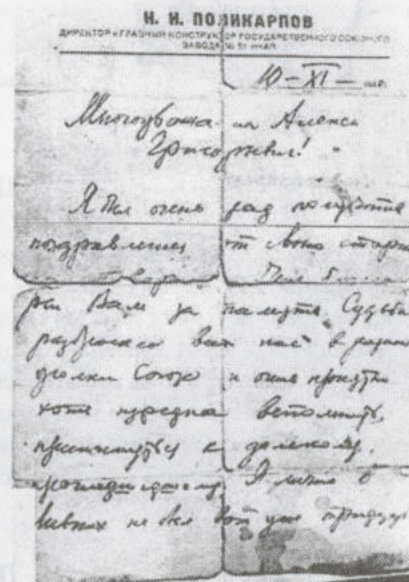 Н. Н. ПОЛИКАРПОВ
ДИРЕКТОР и ГЛАВНЫЙ КОНСТРУКТОР ГОСУДАРСТВЕННОГО СОЮЗНОГО
ЗАВОДА № 51 НКАП
10-XI-
Алексей
Григорьевич!
Я был очень рад получить
поздравления от своих
Вам за память. Судьба
разбросала всех нас в разные
уголки Союза и очень приятно
хотя изредка вспомнить,
прикоснуться к далекому,
прошедшему. Я лично в
не был вот уже